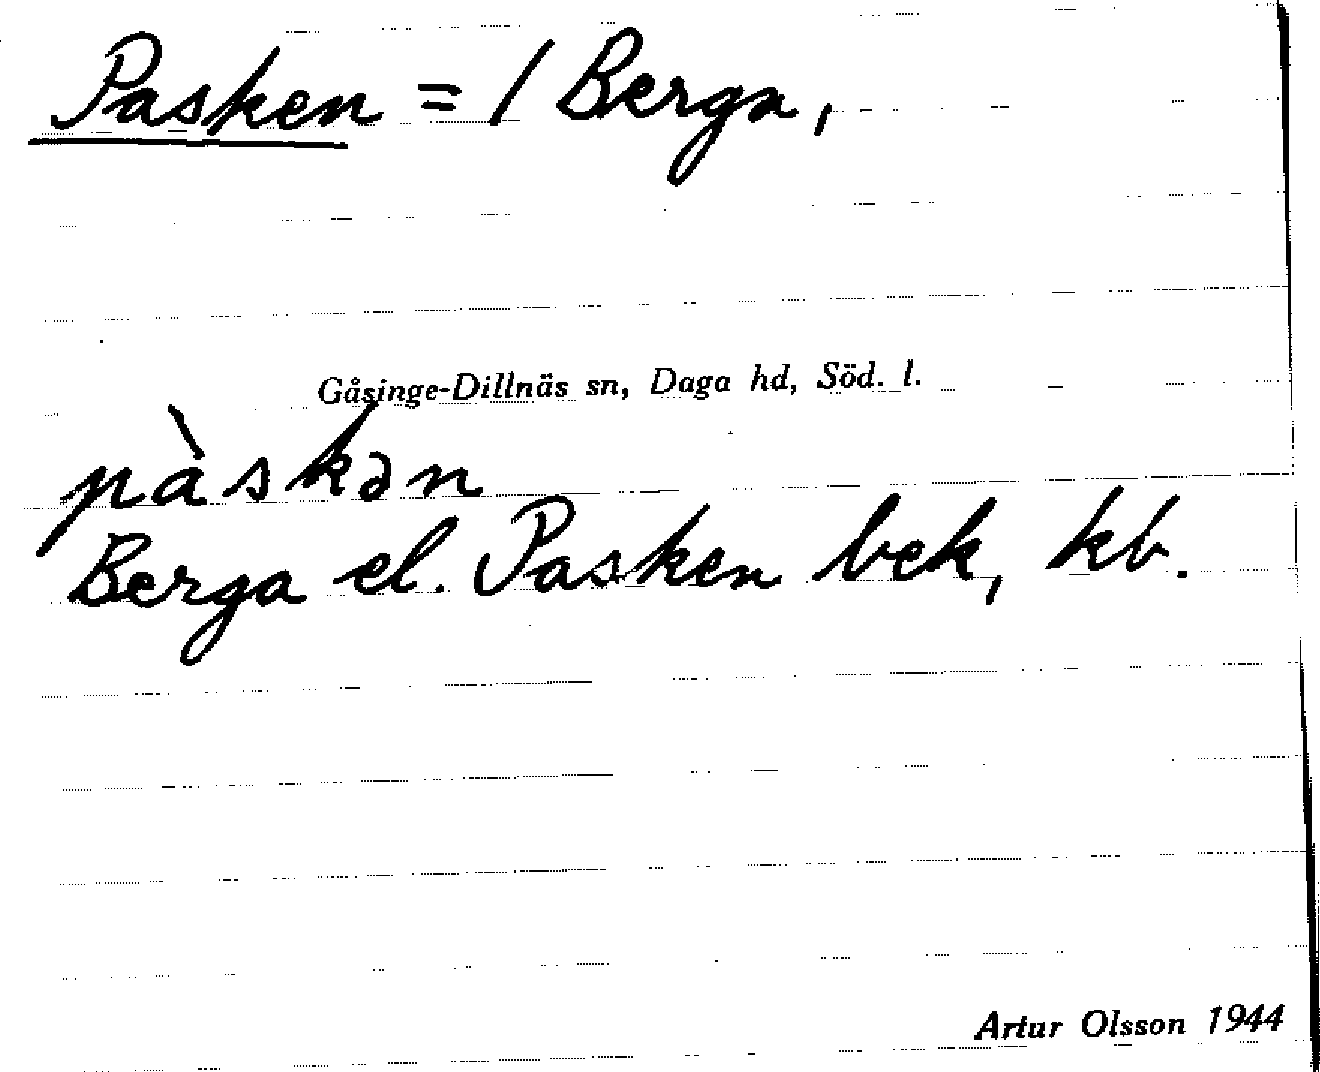 Pasken = / Berga,
Gåsinge-Dillnäs sn, Daga hd, Söd. l.
pàskən
Berga el. Pasken bek, kb.
Artur Olsson 1944